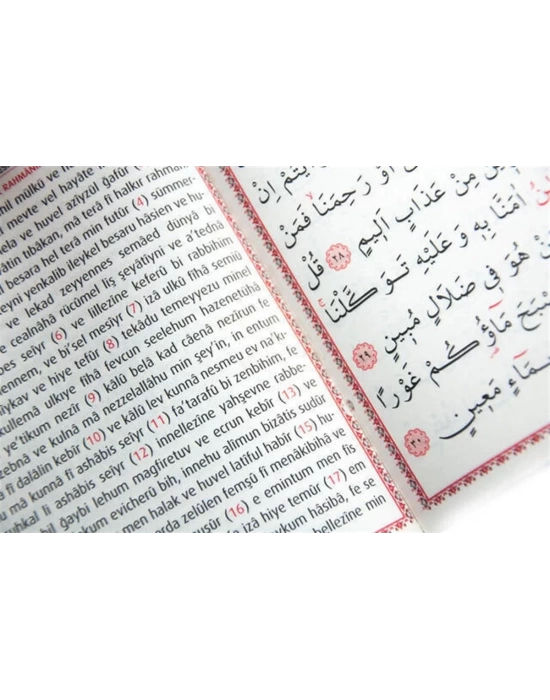 RAHMAN
hil mülkü ve
meyte vel hayâte
ve huvel azîyzül ğafûr
tıbâkan, mâ terâ fî halkır rahmân
besara hel terâ min futûr (4) sümmer-
yenkalib ileykel besaru hâsien ve hu-
ve lekad zeyyennes semâed dünyâ bi
cealnâhâ rücûmel liş şeyâtiyni ve a'tednâ
seiyr (6) ve lillezîne keferû bi rabbihim
ve bi'sel mesiyr (7) izâ ulkû fîhâ semiû
ve hiye tefûr (8) tekâdu temeyyezu minel
kullemâ ulkıye fîhâ fevcun seelehum hazenetühâ
e'tikum nezîr (9) kâlû belâ kad câenâ nezîrun fe
ve kulnâ mâ nezzelallâhu min şey'in, in entum
fî dalâlin kebîr (10) ve kâlû lev kunnâ nesmeu ev na'kı-
mâ kunnâ fî ashâbis seiyr (11) fa'tarafû bi zenbihim, fe
li ashâbis seiyr (12) innellezîne yahşevne rabbe-
bil ğaybi lehum mağfiretuv ve ecrun kebîr (13) ve
evicherû bih, innehu alîmun bizâtis sudûr
men halak ve huvel latîful habîr (15) hu-
zelûlen femşû fî menâkibihâ ve
(16) e emintum men fis
izâ hiye temûr (17) em
hâsibâ, fe se
bellezîne min
اِنْ
اَوْ رَحِمَنَا فَمَنْ
مِنْ عَذَابٍ اَلِيمٍ ﴿٢٨﴾ قُلْ
اٰمَنَّا بِهِ وَعَلَيْهِ تَوَكَّلْنَا
هُوَ فِي ضَلَالٍ مُبِينٍ ﴿٢٩﴾
مَاؤُكُمْ غَوْرًا
مَعِينٍ ﴿٣٠﴾